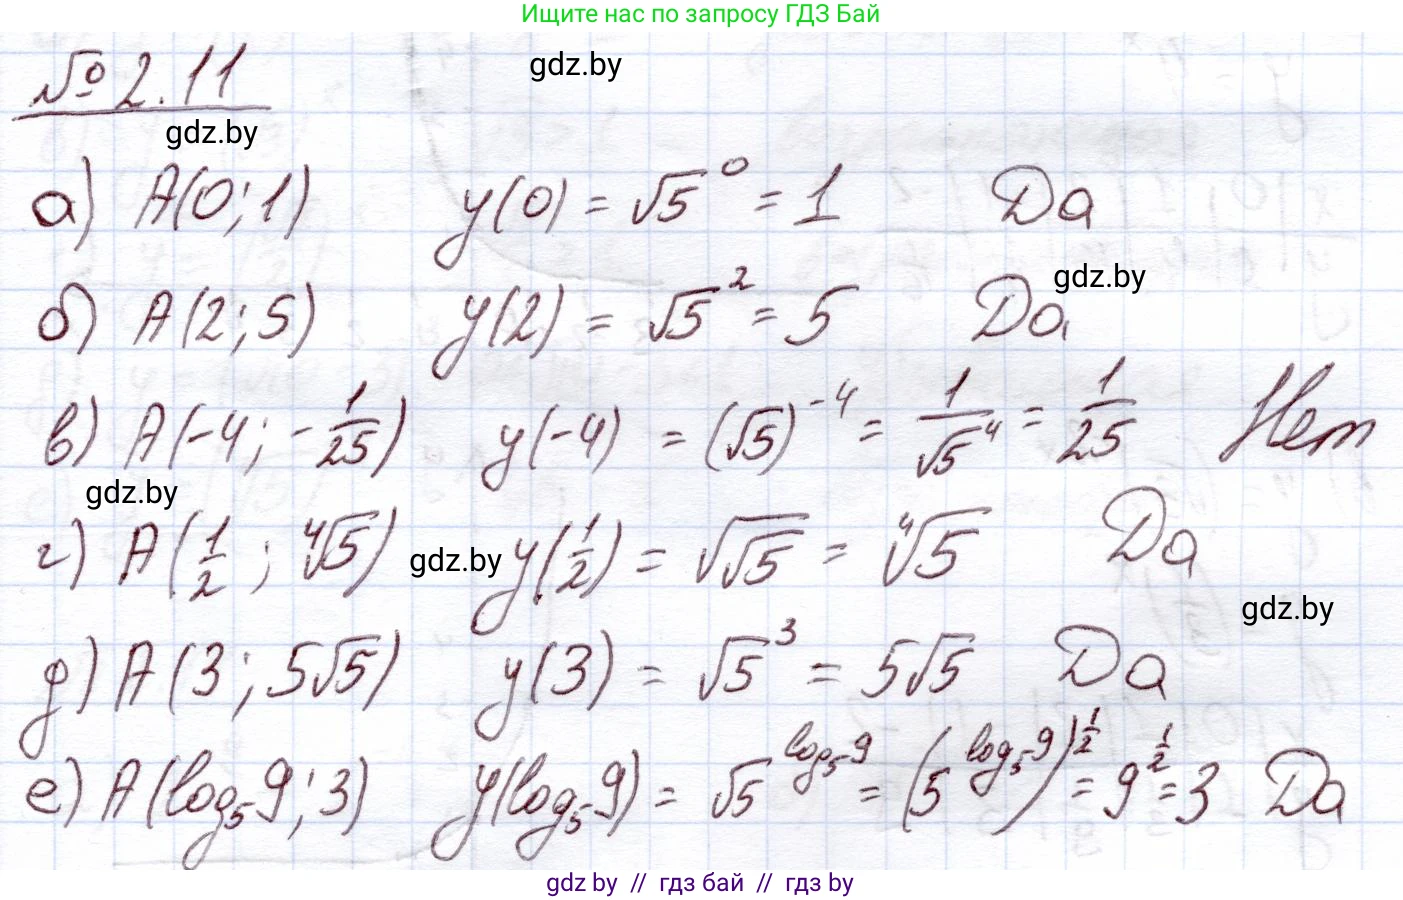 Ищите нас по запросу ГДЗ Бай
№ 2.11
gdz.by
gdz.by
а) A(0; 1) y(0) = √5^0 = 1 Да
gdz.by
б) A(2; 5) y(2) = √5^2 = 5 Да
в) A(-4; -1/25) y(-4) = (√5)^-4 = 1/√5^4 = 1/25 Нет
gdz.by
г) A(1/2; ∜5) gdz.by y(1/2) = √√5 = ∜5 Да
gdz.by
д) A(3; 5√5) y(3) = √5^3 = 5√5 Да
е) A(log₅9; 3) y(log₅9) = √5^log₅9 = (5^log₅9)^1/2 = 9^1/2 = 3 Да
gdz by // гдз бай // гдз by